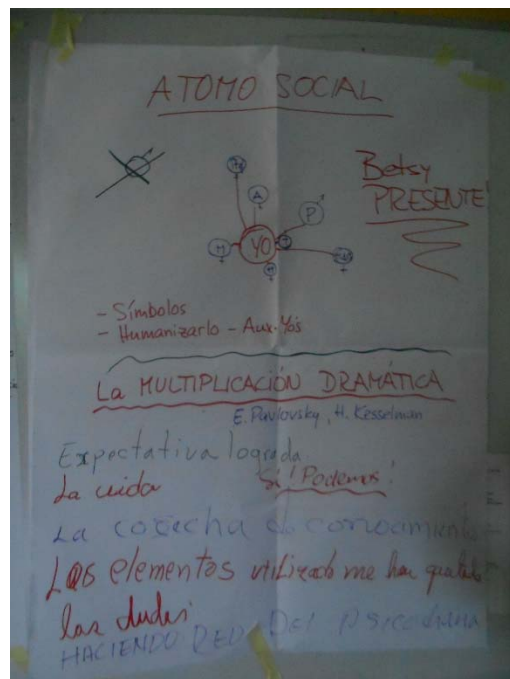 ATOMO SOCIAL
Betsy
PRESENTE!
A
P
M
YO
- Símbolos
- Humanizarlo - Aux-Yós
La MULTIPLICACIÓN DRAMÁTICA
E. Pavlovsky, H. Kesselman
Expectativa lograda
La cuida
Sí! Podemos!
La cosecha de conocimiento
Los elementos utilizado me han quitado
las dudas
HACIENDO RED DEL PSICODRAMA